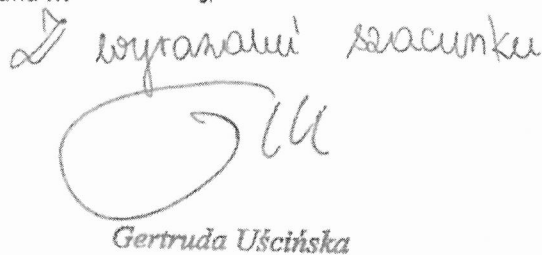 Z wyrazami szacunku
Gertruda Uścińska